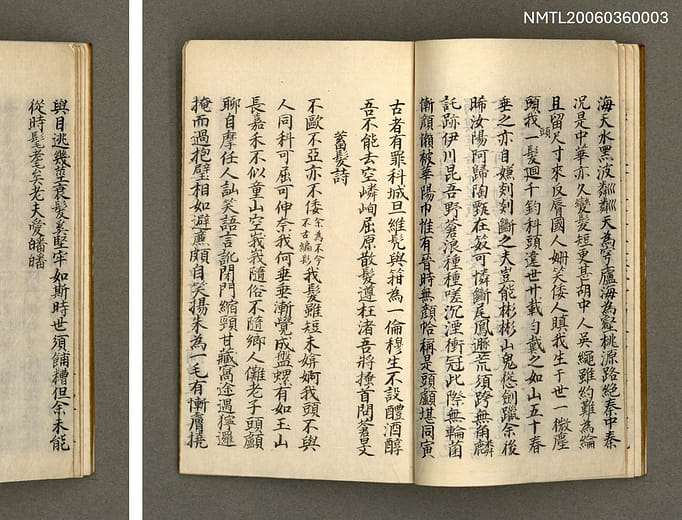 NMTL20060360003
海天水黑波粼粼天為穹廬海為盤桃源路絕秦中秦
况是中華亦久變髮短更甚胡中人吳繩雖約難為綸
且留尺寸來反脣國人姍笑倭人瞋我生于世一微塵
頭我一髮迴千鈞科頭違世廿載勻戴之如山五十春
頭
垂之亦自嫌剃剃斷之夫豈能彬彬山鬼 劍躐余後
晞汝陽阿歸陶甄在 可憐斷尾鳳遯荒須跨無角麟
託跡伊川昆吾野蒼浪種種嗟沉湮衝冠此際無輪菌
衝顏懶被華陽巾惟有晉時無顏帢稱是頭顱堪同寅
古者有罪科城旦維髡與箝為一倫穆生不設醴酒醇
吾不能去空嶙峋屈原散髮遵枉渚吾將捶首問蒼旻
蓄髮詩
不歐不亞亦不倭余為不今不古編髟我髮雖短未媕婀我頭不與
人同科可屈可伸奈我何垂垂漸覺成盤螺有如玉山
長嘉禾不似童山空峩峩我隨俗不隨鄉人儺老子頭顱
聊自摩任人訕笑語言訛閉門縮頸甘藏窩途過獰邏
掩而過抱璧相如避廉頗自笑揚朱為一毛有慚膚撓
與目逃幾莖衰髮系堅牢如斯時世須餔糟但余未能
從時髦耄矣老夫愛皤皤